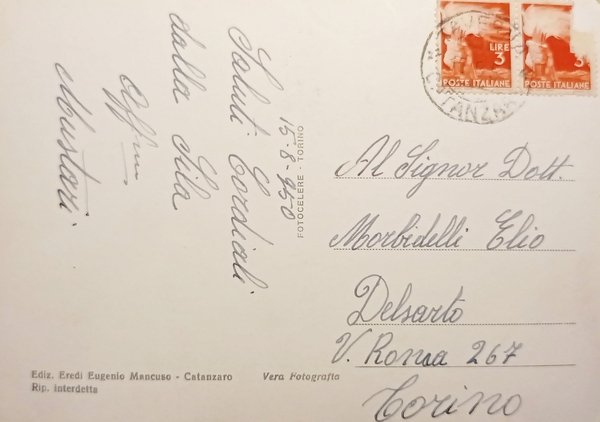 15-8-950
Saluti Cordiali
dalla Sila
Aff.mi
Mustari
FOTOCELERE - TORINO
LIRE
3
POSTE ITALIANE
3
POSTE ITALIANE
Al Signor Dott.
Morbidelli Elio
Delsarto
V. Ronsa 267
Torino
Ediz. Eredi Eugenio Mancuso - Catanzaro
Vera Fotografia
Rip. interdetta